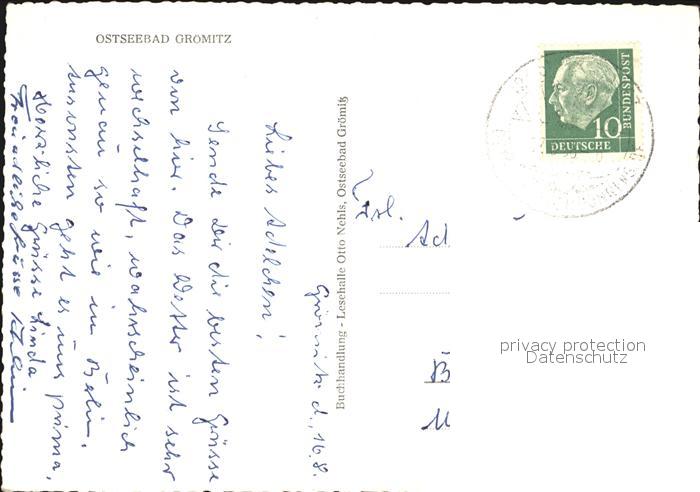 OSTSEEBAD GRÖMITZ
Grömitz d., 16.8.
Liebes Adelchen!
Sende Dir die besten Grüsse
von hier. Das Wetter ist sehr
wechselhaft, wahrscheinlich
genau so wie in Berlin.
Ansonsten geht es uns prima,
Herzliche Grüsse Linda
Buchhandlung - Lesehalle Otto Nehls, Ostseebad Grömitz
10
DEUTSCHE
BUNDESPOST
Frl.
Ad
B
privacy protection
Datenschutz